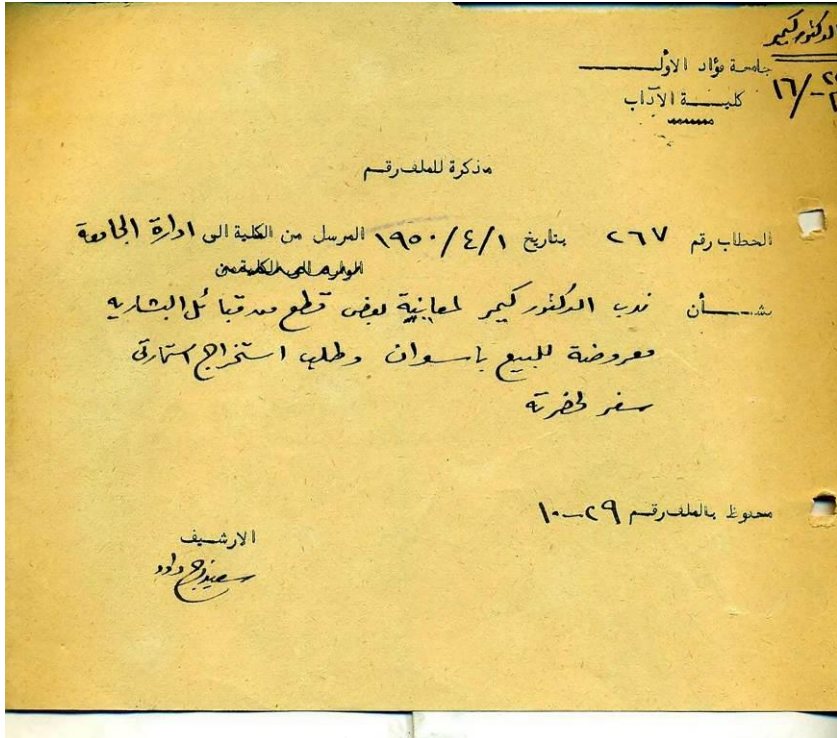 الدكتور كيمر
جامعة فؤاد الأول
كلية الآداب
١٦/-
مذكرة للملف رقم
الخطاب رقم ٢٦٧ بتاريخ ١٩٥٠/٤/١ المرسل من الكلية الى ادارة الجامعة
الوارد الى الكلية من
بشأن ندب الدكتور كيمر لمعاينة بعض قطع من قبائل البشاريه
معروضة للبيع باسوان وطلب استخراج استمارتى
سفر لحضرته
محفوظ بالملف رقم ٢٩-١٠
الارشيف
سعيد